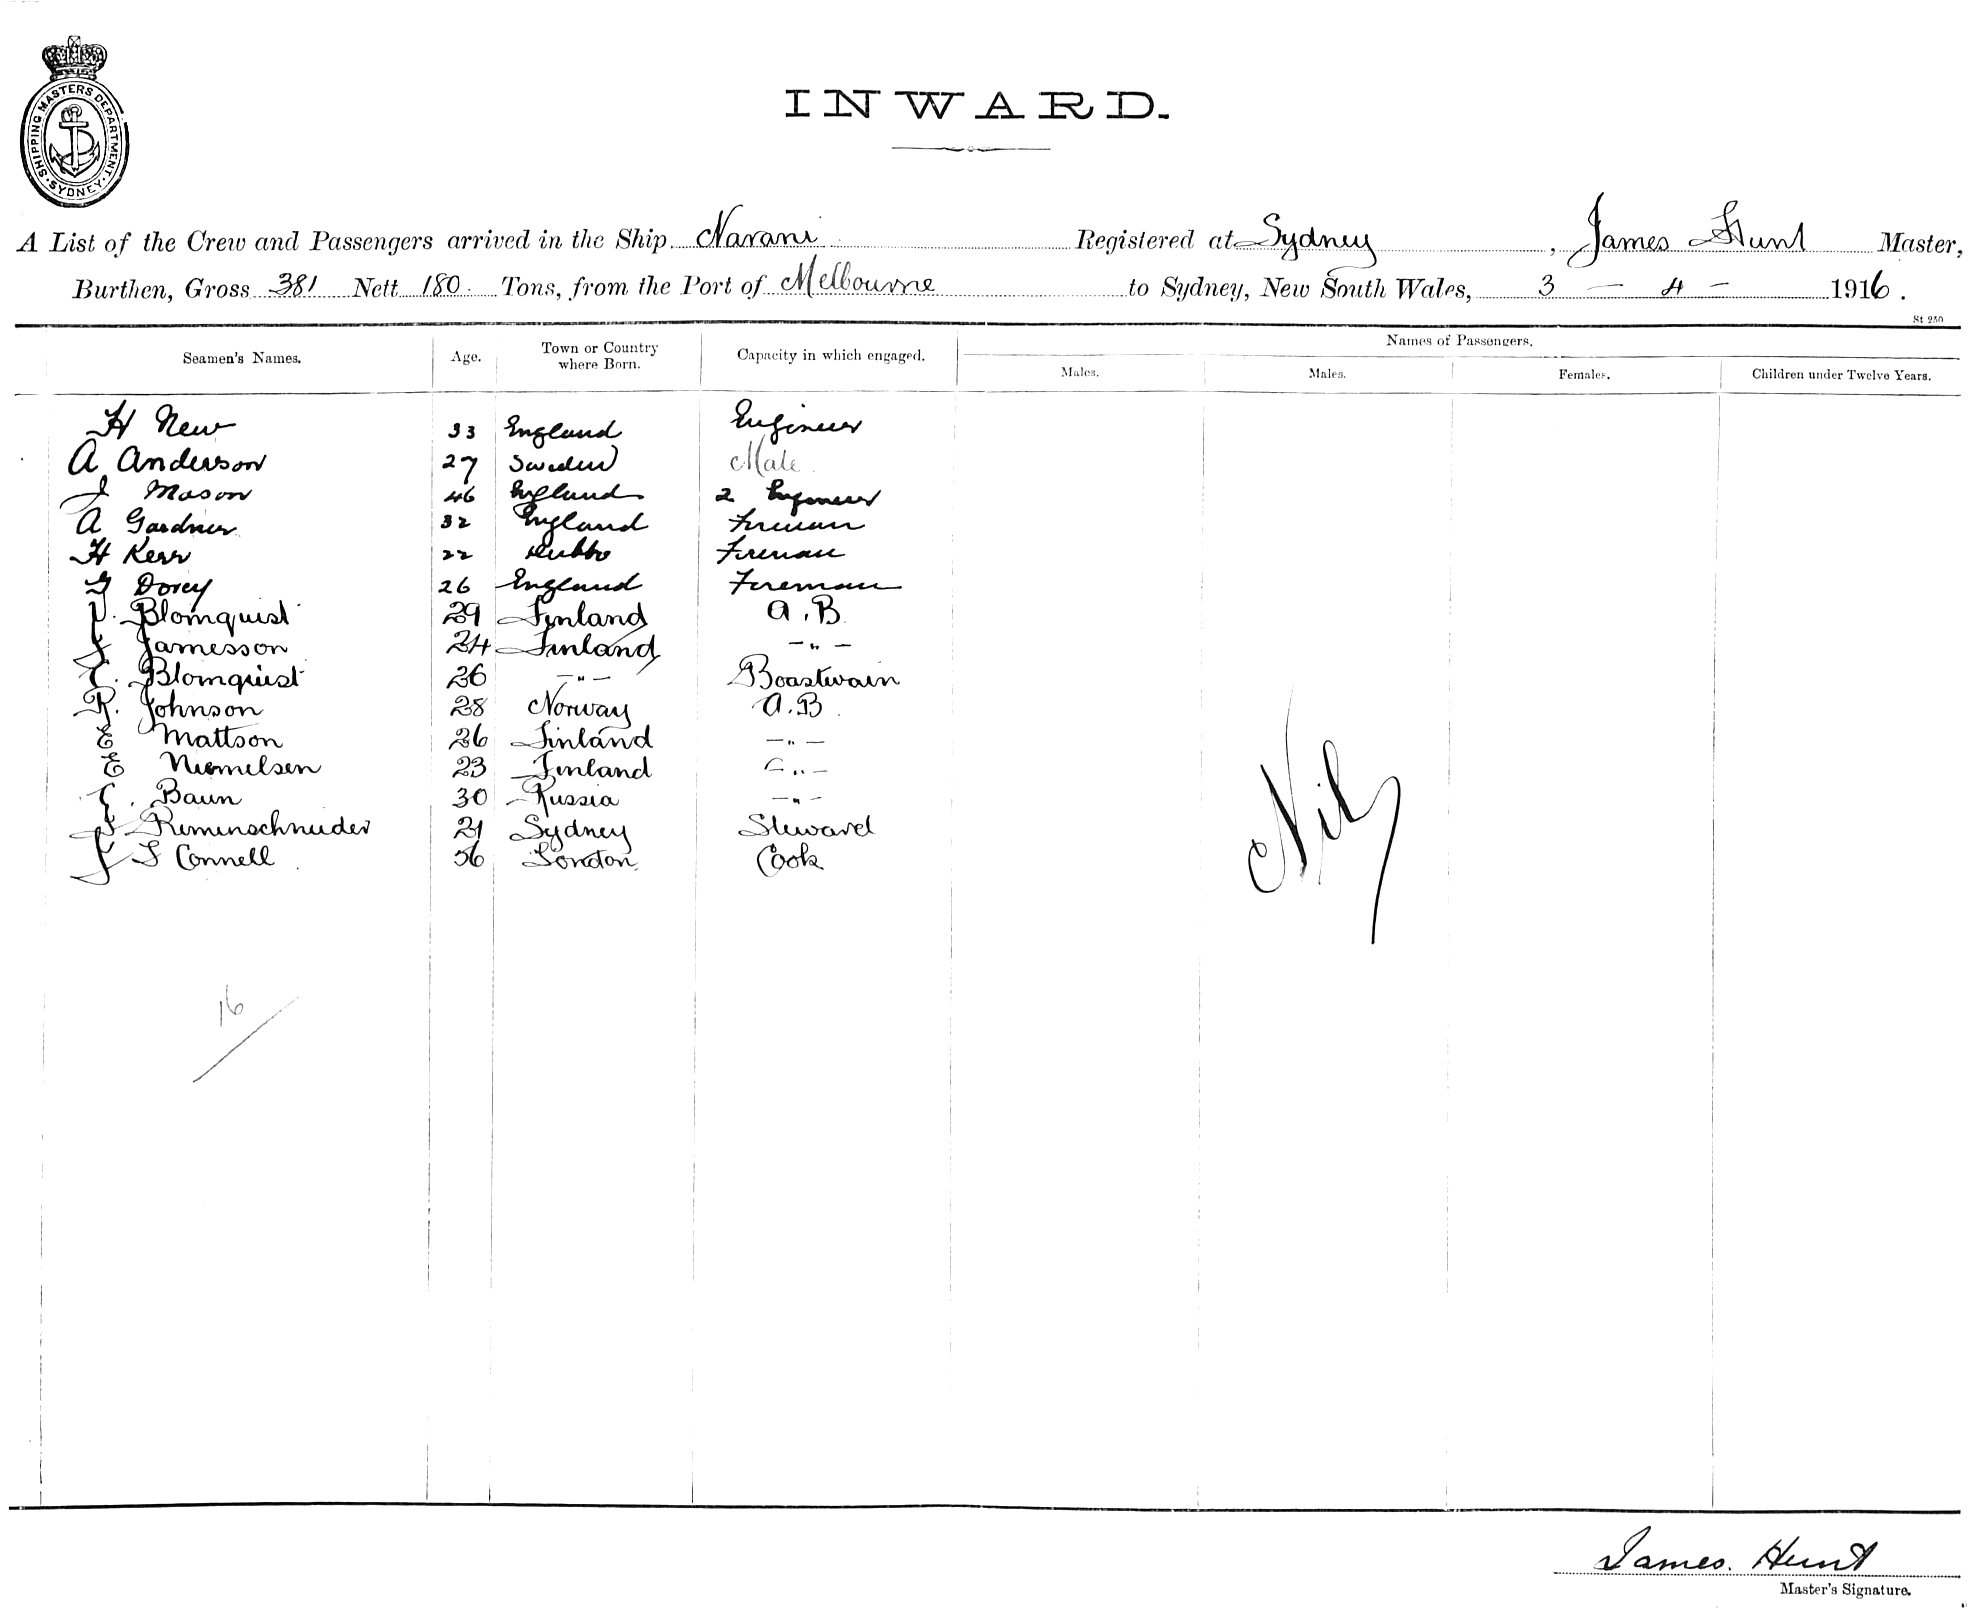 SHIPPING MASTERS DEPARTMENT. SYDNEY
INWARD.
A List of the Crew and Passengers arrived in the Ship Narani Registered at Sydney, James Hunt Master,
Burthen, Gross 381 Nett 180. Tons, from the Port of Melbourne to Sydney, New South Wales, 3 — 4 — 1916.
St 250
Seamen's Names. Age. Town or Country where Born. Capacity in which engaged. Names of Passengers.
Males. Males. Females. Children under Twelve Years.
H New 33 England Engineer
A Anderson 27 Sweden Mate
J Mason 46 England 2 Engineer
A Gardner 32 England Fireman
H Kerr 22 Dubbo Fireman
G Dorey 26 England Fireman
Blomquist 29 Finland A.B.
J Jamesson 24 Finland —"—
Blomquist 26 —"— Boastwain
R. Johnson 28 Norway A.B.
E Mattson 26 Finland —"—
E 23 Finland —"—
Baun 30 Russia —"—
Rimenschneider 21 Sydney Steward
J S Connell 56 London Cook
Nil
16
James. Hunt
Master's Signature.